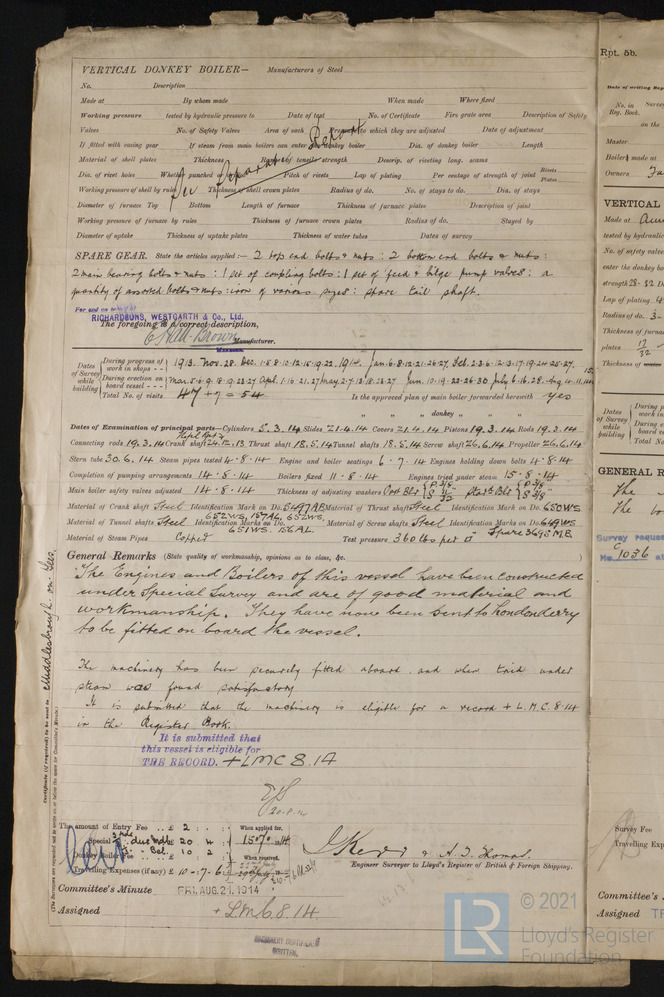 VERTICAL DONKEY BOILER— Manufacturers of Steel
No. Description
Made at By whom made When made Where fixed
Working pressure tested by hydraulic pressure to Date of test No. of Certificate Fire grate area Description of Safety
Valves No. of Safety Valves Area of each Pressure to which they are adjusted Date of adjustment
If fitted with easing gear If steam from main boilers can enter the donkey boiler Dia. of donkey boiler Length
Material of shell plates Thickness Range of tensile strength Descrip. of riveting long. seams
Dia. of rivet holes Whether punched or Pitch of rivets Lap of plating Per centage of strength of joint Rivets Plates
See Separate Report
Working pressure of shell by rules Thickness of shell crown plates Radius of do. No. of stays to do. Dia. of stays
Diameter of furnace Top Bottom Length of furnace Thickness of furnace plates Description of joint
Working pressure of furnace by rules Thickness of furnace crown plates Radius of do. Stayed by
Diameter of uptake Thickness of uptake plates Thickness of water tubes Dates of survey
SPARE GEAR. State the articles supplied:— 2 top end bolts & nuts: 2 bottom end bolts & nuts:
2 main bearing bolts & nuts: 1 set of coupling bolts: 1 set of feed & bilge pump valves: a
quantity of assorted bolts & nuts: iron of various sizes: spare tail shaft.
RICHARDSONS, WESTGARTH & Co., Ltd.
The foregoing is a correct description,
Manufacturer.
Dates of Survey while building
During progress of work in shops - - 1913. Nov. 28. Dec. 1.5.8.10.12.15.19.22. 1914. Jan. 6.8.12.21.26.27. Feb. 2.3.6.12.13.17.19.24.25.27.
During erection on board vessel - - -
Total No. of visits 47 + 7 = 54 Is the approved plan of main boiler forwarded herewith yes
" " " donkey " " "
Dates of Examination of principal parts—Cylinders 5.3.14 Slides 21.4.14 Covers 21.4.14 Pistons 19.3.14 Rods 19.3.14
Connecting rods 19.3.14 Crank shaft 24.12.13 Thrust shaft 18.5.14 Tunnel shafts 18.5.14 Screw shaft 26.6.14 Propeller 26.6.14
Stern tube 30.6.14 Steam pipes tested 4.8.14 Engine and boiler seatings 6.7.14 Engines holding down bolts 4.8.14
Completion of pumping arrangements 14.8.14 Boilers fixed 11.8.14 Engines tried under steam 15.8.14
Main boiler safety valves adjusted 14.8.14 Thickness of adjusting washers Port Blr P 3/8 Starbd Blr P 3/8 S 3/8
Material of Crank shaft Steel Identification Mark on Do. 5497AB Material of Thrust shaft Steel Identification Mark on Do. 650WS
652WS, 187AL, 653WS,
Material of Tunnel shafts Steel Identification Marks on Do. 651WS. 156AL. Material of Screw shafts Steel Identification Marks on Do. 649WS
Spare 3695 MB
Material of Steam Pipes Copper Test pressure 360 lbs per □"
General Remarks (State quality of workmanship, opinions as to class, &c.
The Engines and Boilers of this vessel have been constructed
under Special Survey and are of good material and
workmanship. They have now been sent to Londonderry
to be fitted on board the vessel.
The machinery has been securely fitted aboard and when tried under
steam was found satisfactory
It is submitted that the machinery is eligible for a record + L.M.C. 8.14
in the Register Book.
It is submitted that
this vessel is eligible for
THE RECORD. + LMC 8.14
The amount of Entry Fee .. £ 2 : : When applied for,
Special £ 20 . 4 :
Donkey Boiler Fee £ 10 . 2 : When received,
Travelling Expenses (if any) £ 10 . 7 . 6
& A. J. Thomas.
Engineer Surveyor to Lloyd's Register of British & Foreign Shipping.
Committee's Minute FRI. AUG. 21. 1914
Assigned + LMC 8.14
WRITTEN.
Certificate (if required) to be sent to Middlesbrough-on-Tees.
Rpt. 5b.
Date of writing Rep
No. in Reg. Book. Survey
on the
Master
Boilers made at
Owners
VERTICAL
Made at
tested by hydraulic
No. of safety valves
enter the donkey bo
strength 28-32
Lap of plating
Radius of do.
Thickness of furnac
plates 17/32
Thickness of
Dates of Survey while building
During p
work in
During e
board v
Total N
GENERAL R
The
The
Survey reques
No. 1036 at
Survey Fee
Travelling Exp
Committee's
Assigned
LR © 2021
Lloyd's Register
Foundation